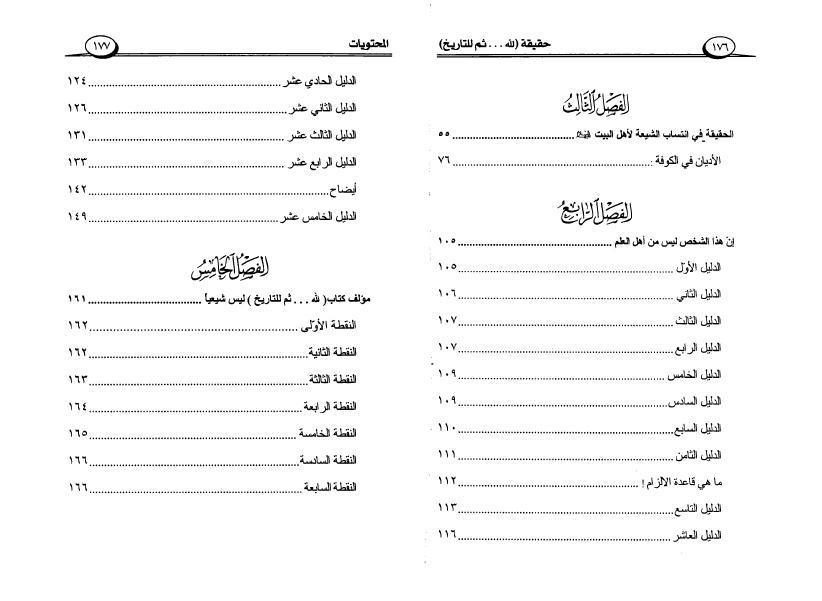 ١٧٦ حقيقة (لله . . . ثم للتاريخ)
الفصل الثالث
الحقيقة في انتساب الشيعة لأهل البيت ............ ٥٥
الأديان في الكوفة : ............ ٧٦
الفصل الرابع
إن هذا الشخص ليس من أهل العلم ............ ١٠٥
الدليل الأول ............ ١٠٥
الدليل الثاني ............ ١٠٦
الدليل الثالث ............ ١٠٧
الدليل الرابع ............ ١٠٧
الدليل الخامس ............ ١٠٩
الدليل السادس ............ ١٠٩
الدليل السابع ............ ١١٠
الدليل الثامن ............ ١١١
ما هي قاعدة الالزام ! ............ ١١٢
الدليل التاسع ............ ١١٣
الدليل العاشر ............ ١١٦
المحتويات ١٧٧
الدليل الحادي عشر ............ ١٢٤
الدليل الثاني عشر ............ ١٢٦
الدليل الثالث عشر ............ ١٣١
الدليل الرابع عشر ............ ١٣٣
أيضاح ............ ١٤٢
الدليل الخامس عشر ............ ١٤٩
الفصل الخامس
مؤلف كتاب( لله . . . ثم للتاريخ ) ليس شيعياً ............ ١٦١
النقطة الأولى ............ ١٦٢
النقطة الثانية ............ ١٦٢
النقطة الثالثة ............ ١٦٣
النقطة الرابعة ............ ١٦٤
النقطة الخامسة ............ ١٦٥
النقطة السادسة ............ ١٦٦
النقطة السابعة ............ ١٦٦